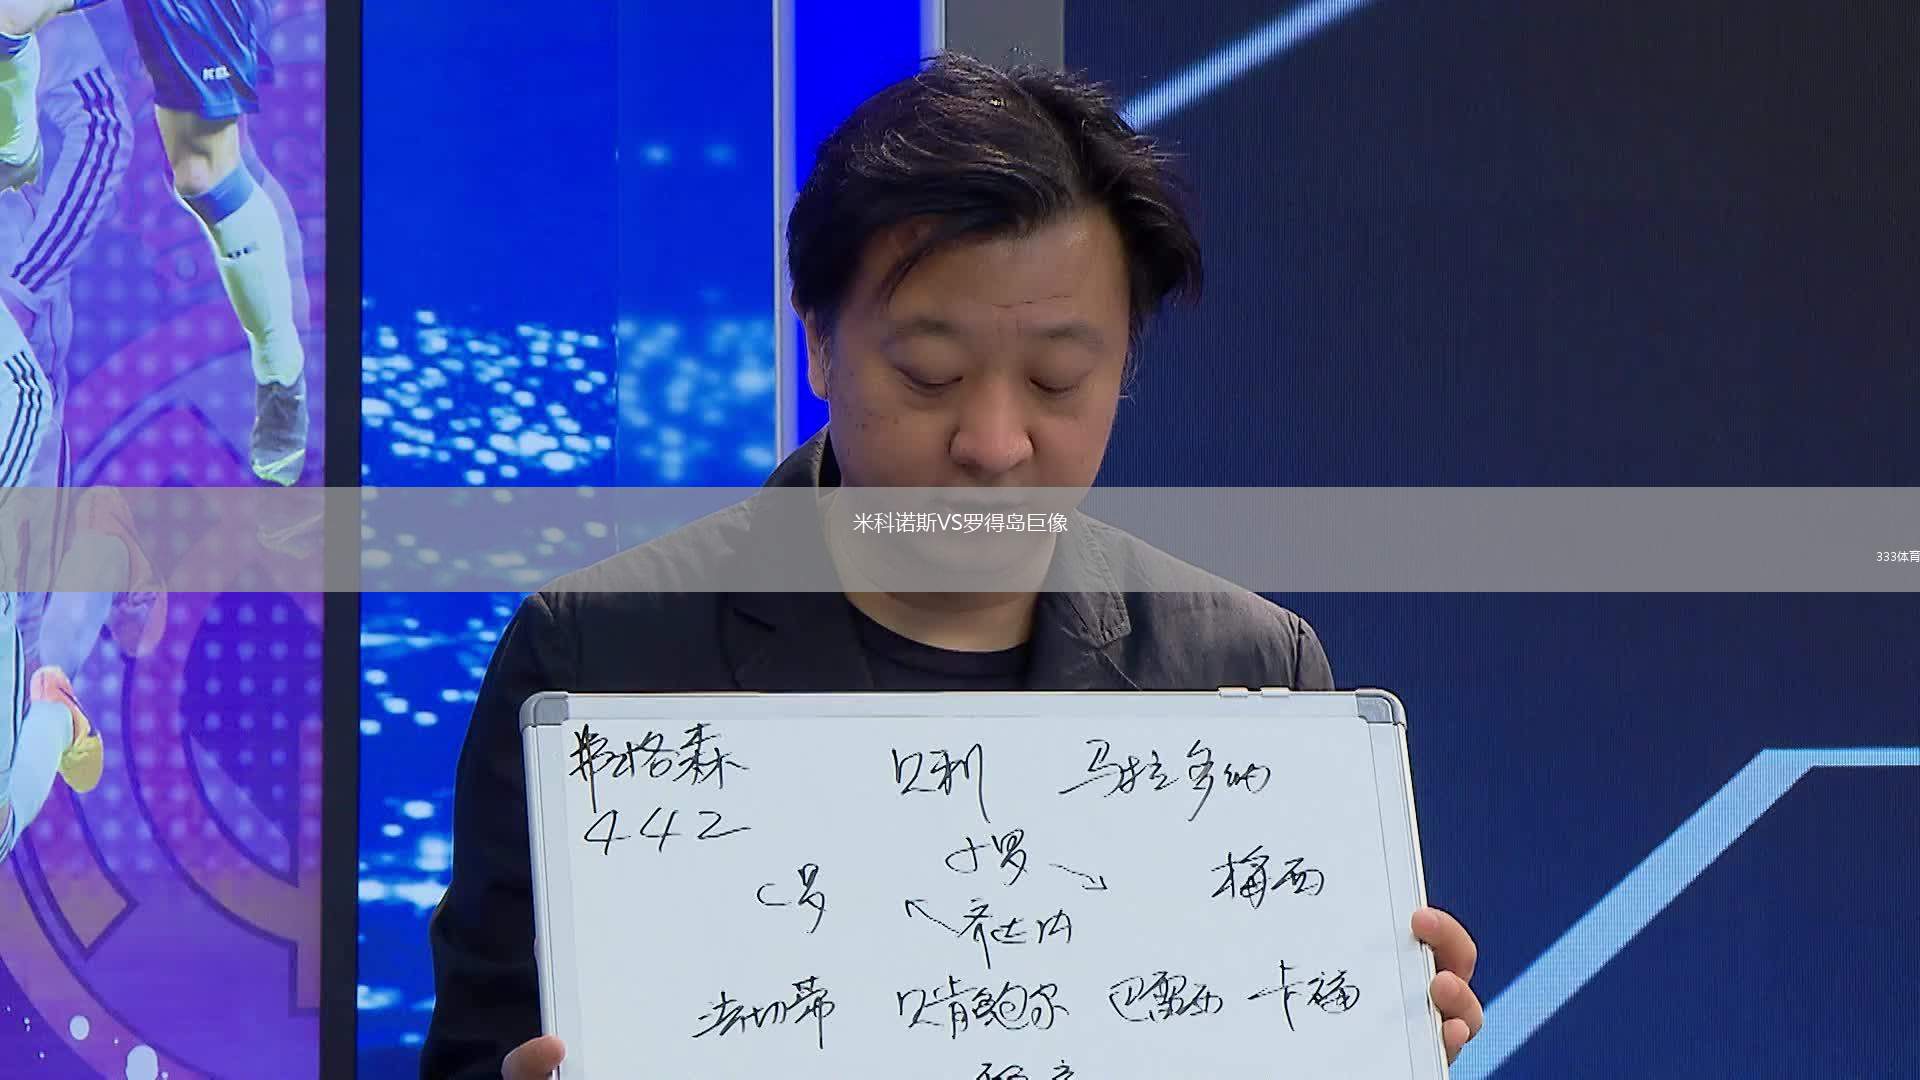 米科诺斯VS罗得岛巨像
333体育
弗格森 贝利 马拉多纳
442
小罗
C罗 梅西
齐达内
法切蒂 贝肯鲍尔 巴雷西 卡福